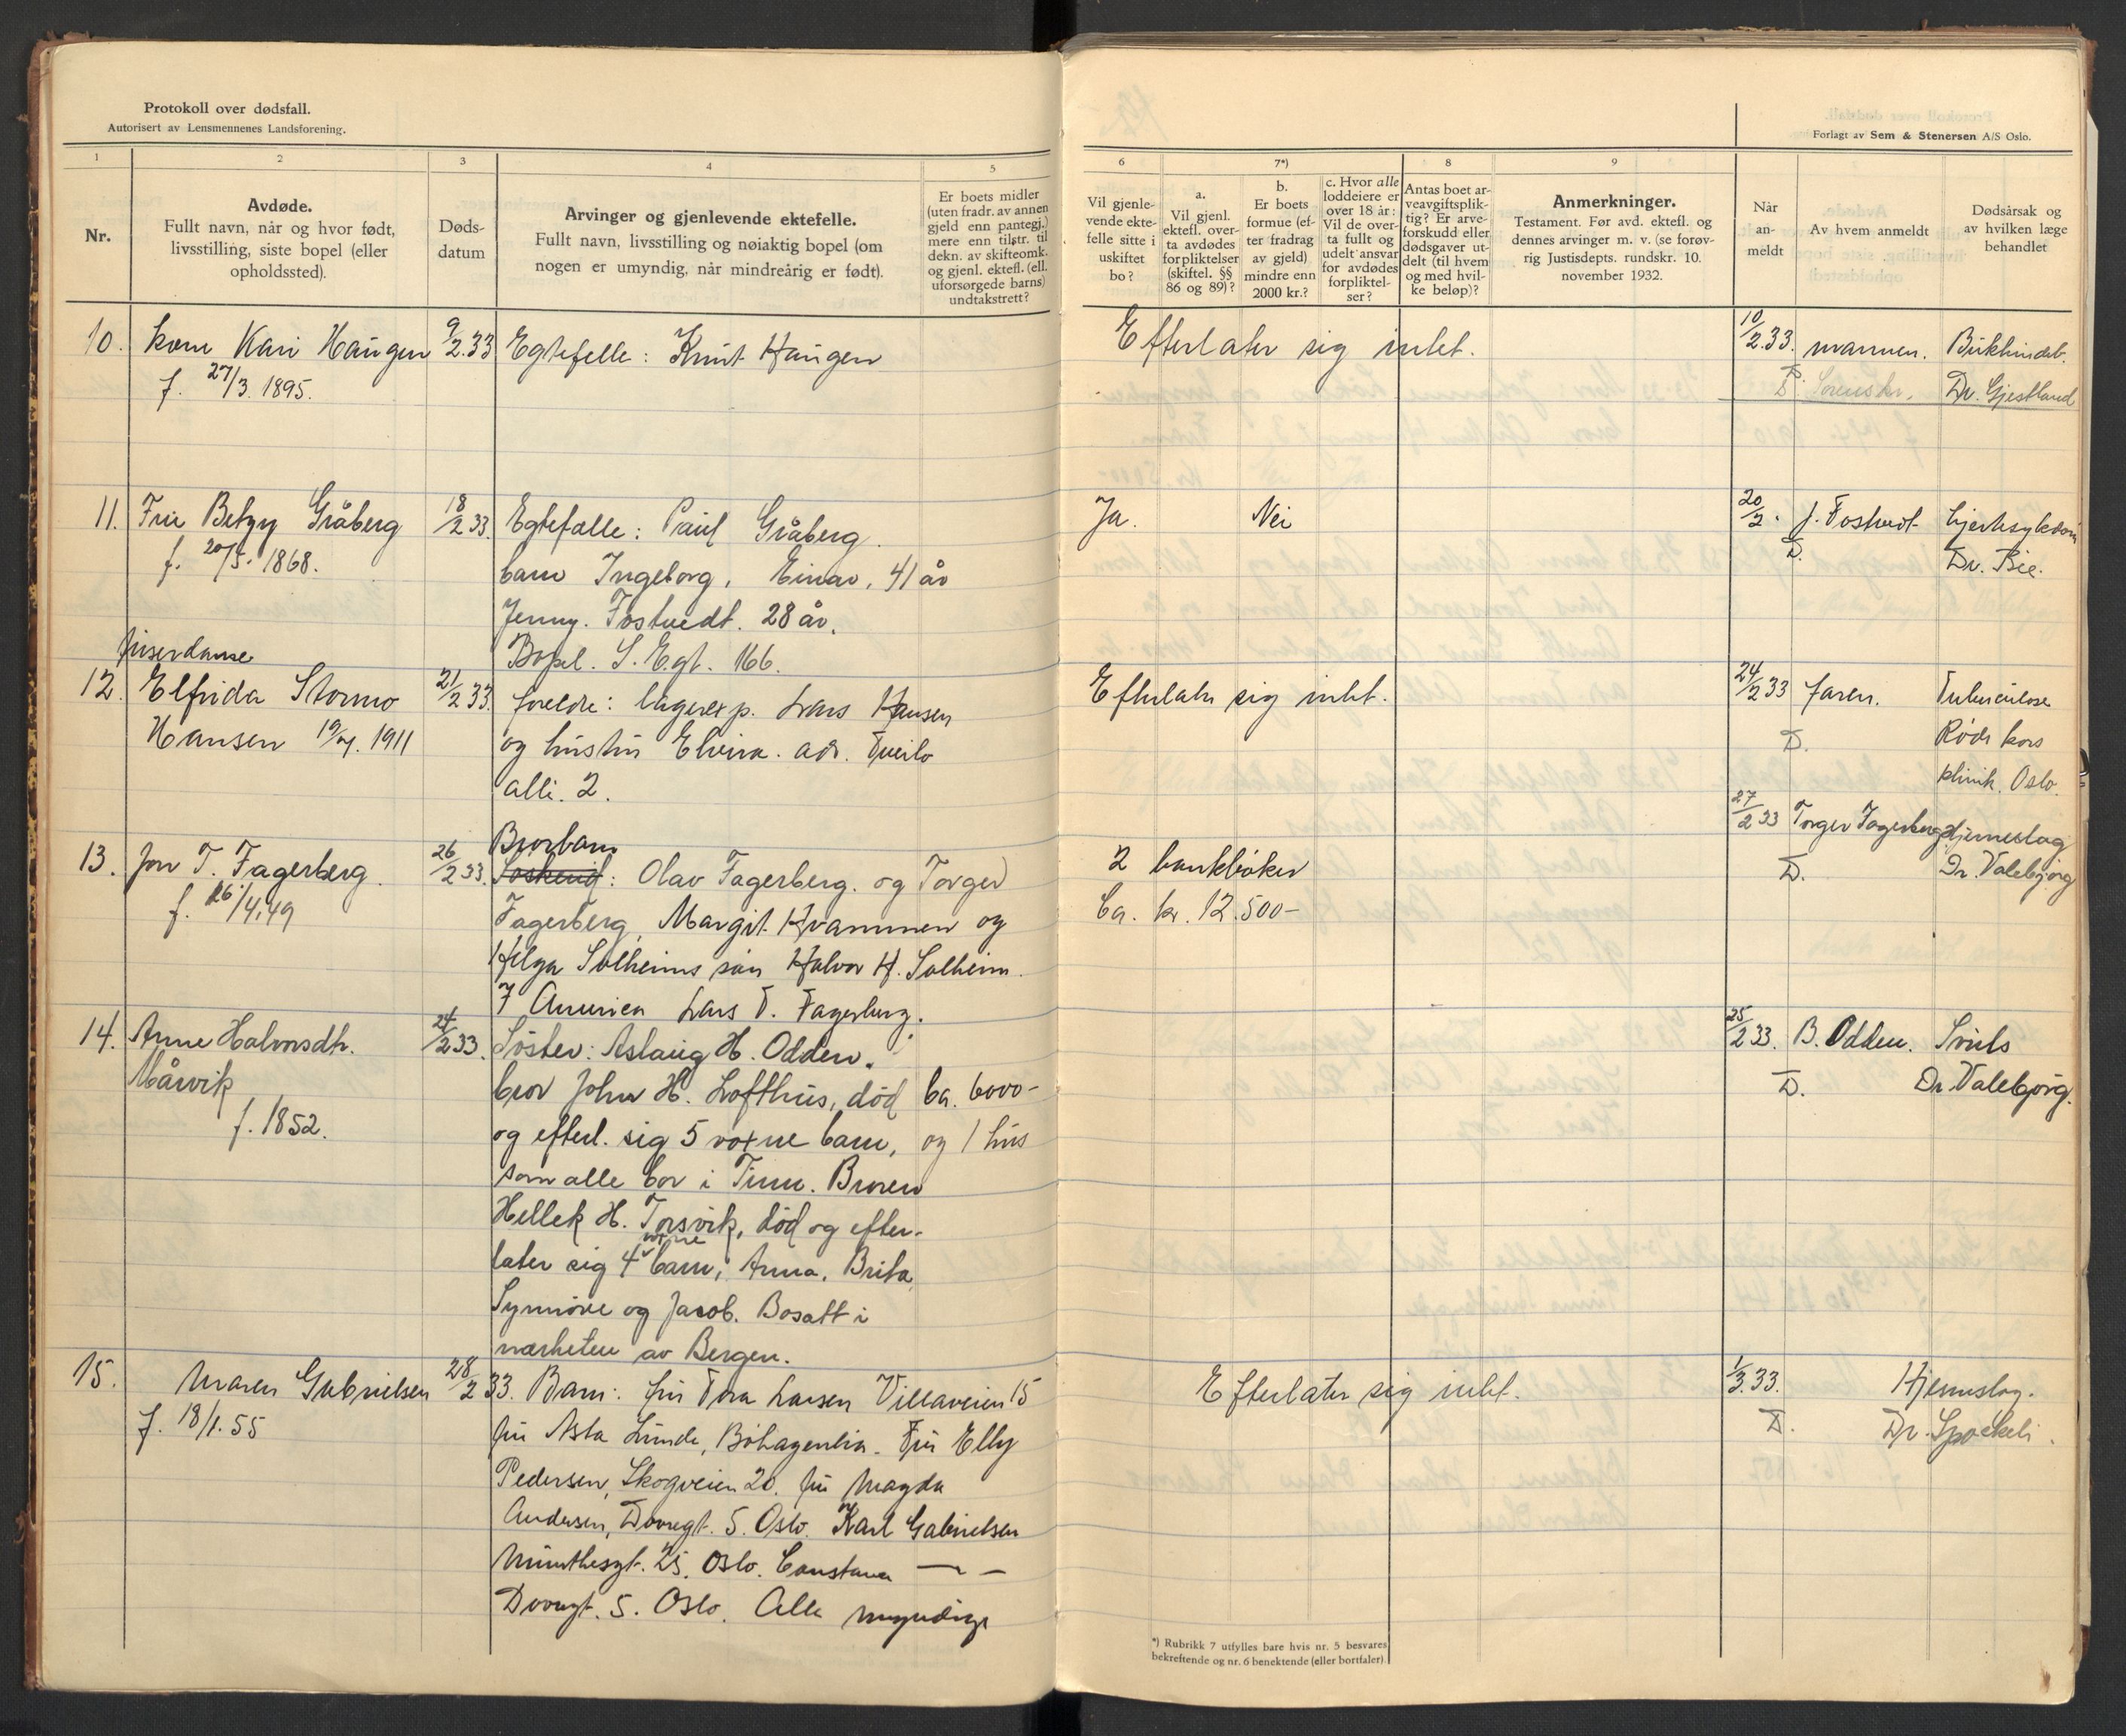 Protokoll over dødsfall.
Autorisert av Lensmennenes Landsforening.
1
2
3
4
5
Nr.
Avdøde.
Fullt navn, når og hvor født,
livsstilling, siste bopel (eller
opholdssted).
Døds-
datum
Arvinger og gjenlevende ektefelle.
Fullt navn, livsstilling og nøiaktig bopel (om
nogen er umyndig, når mindreårig er født).
Er boets midler
(uten fradr. av annen
gjeld enn pantegj.)
mere enn tilstr. til
dekn. av skifteomk.
og gjenl. ektefl. (ell.
uforsørgede barns)
undtakstrett?
10. kone Kari Haugen 9/2.33 Egtefelle: Knut Haugen
f. 27/3.1895.
11. Frue Betzy Gråberg 18/2 33. Egtefalle: Paul Gråberg.
f. 20/5.1868.
barn Ingeborg, Einar, 41 år
Jenny. Fostvedt. 28 år.
Bopel. S. E.gt. 166.
friserdame
12. Elfrida Stormo 21/2 33. foreldre: lagerexp. Lars Hansen
Hansen 1911 og hustru Elvira. adr. Tveito
alle. 2.
Brorbarn
13. Jon T. Fagerberg. 26/2 33. Søskend: Olav Fagerberg. og Torger
f. 16/4.49
Fagerberg, Margit Kvammen og
Helga Solheims søn Halvor H. Solheim.
I Amerika Lars T. Fagerberg.
14. Anne Halvorsdtr. 24/2 33. Søster: Aslaug H. Odden.
Mårvik
f. 1852.
bror John H. Lofthus, død ca. 6000-
og efterl. sig 5 voxne barn, og 1 hus
som alle bor i Tinn. Broren
Hellek H. Torsvik, død og efter-
voxne
later sig 4 barn, Anna, Brita,
Synnøve og Jacob. Bosatt i
nærheten av Bergen.
15. Maren Gabrielsen 28/2 33. Barn: fru Tora Larsen Villaveien 15
f. 18/1.55
fru Asta Lunde, Bøhagenlia. Fru Elly
Pedersen, Skogveien 20. fru Magda
Andersen, Dovregt. 5. Oslo. Karl Gabrielsen
Munthesgt. 25. Oslo. Constance — –
Dovregt. 5. Oslo. Alle myndige
Forlagt av Sem & Stenersen A/S Oslo.
6
7*)
8
9
Vil gjenle-
vende ekte-
felle sitte i
uskiftet
bo?
a.
Vil gjenl.
ektefl. over-
ta avdødes
forpliktelser
(skiftel. §§
86 og 89)?
b.
Er boets
formue (ef-
ter fradrag
av gjeld)
mindre enn
2000 kr.?
c. Hvor alle
loddeiere er
over 18 år:
Vil de over-
ta fullt og
udelt ansvar
for avdødes
forpliktel-
ser?
Antas boet ar-
veavgiftsplik-
tig? Er arve-
forskudd eller
dødsgaver ut-
delt (til hvem
og med hvil-
ke beløp)?
Anmerkninger.
Testament. Før avd. ektefl. og
dennes arvinger m. v. (se forøv-
rig Justisdepts. rundskr. 10.
november 1932.
Når
an-
meldt
Av hvem anmeldt
Dødsårsak og
av hvilken læge
behandlet
Efterlater sig intet. 10/2.33. mannen. Bukhindeb.
D. Sorenskr. Dr. Gjestland
Ja. Nei 20/2. J. Fostvedt hjertesykdom
D. Dr. Bie.
Efterlater sig intet. 24/2 33 faren. Tuberculose
D. Røde kors
klinik. Oslo.
27/2 33 Torger Fagerberg Hjerneslag
2 bankbøker D. Dr. Valebjørg
Ca. kr. 12.500-
25/2 33. B. Odden. Svuls
D. Dr Valebjørg.
Efterlater sig intet. 1/3.33. Hjerneslag.
D. Dr. Spockeli.
*) Rubrikk 7 utfylles bare hvis nr. 5 besvares
bekreftende og nr. 6 benektende (eller bortfaler)